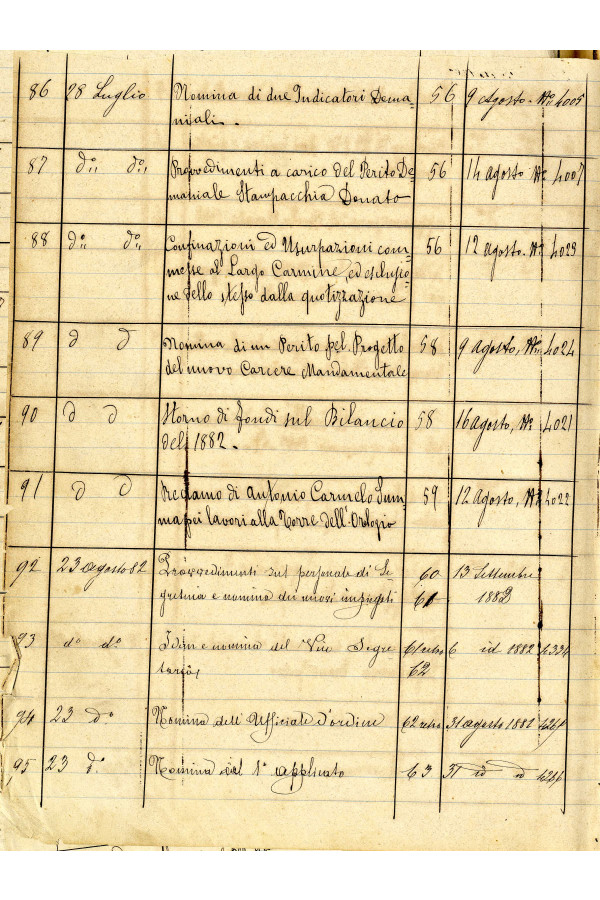 86 28 Luglio Nomina di due Indicatori Dema- 56 9 Agosto. No 4005
niali.
87 do do Provvedimenti a carico del Perito De- 56 14 Agosto No 4007
maniale Stampacchia Donato
88 do do Confinazioni ed Usurpazioni com- 56 12 Agosto. No 4023
messe al Largo Carmine, ed esclusio-
ne dello stesso dalla quotizzazione
89 d d Nomina di un Perito pel Progetto 58 9 Agosto, No 4024
del nuovo Carcere Mandamentale
90 d d Storno di fondi sul Bilancio 58 16 Agosto, No 4021
del 1882.
91 d d Reclamo di Antonio Carmelo Sum- 59 12 Agosto, No 4022
ma pei lavori alla Torre dell'Orologio
92 23 agosto 82 Provvedimenti sul personale di Se- 60 13 Settembre
gretria e nomina dei nuovi impiegati 61 1882
93 do do Idem e nomina del Vice Segre 61 retro 6 id 1882
tario, 62
94 23 do Nomina dell'Ufficiale d'ordine 62 retro 31 agosto 1882
95 23 do Nomina del 1o applicato 63 31 id d